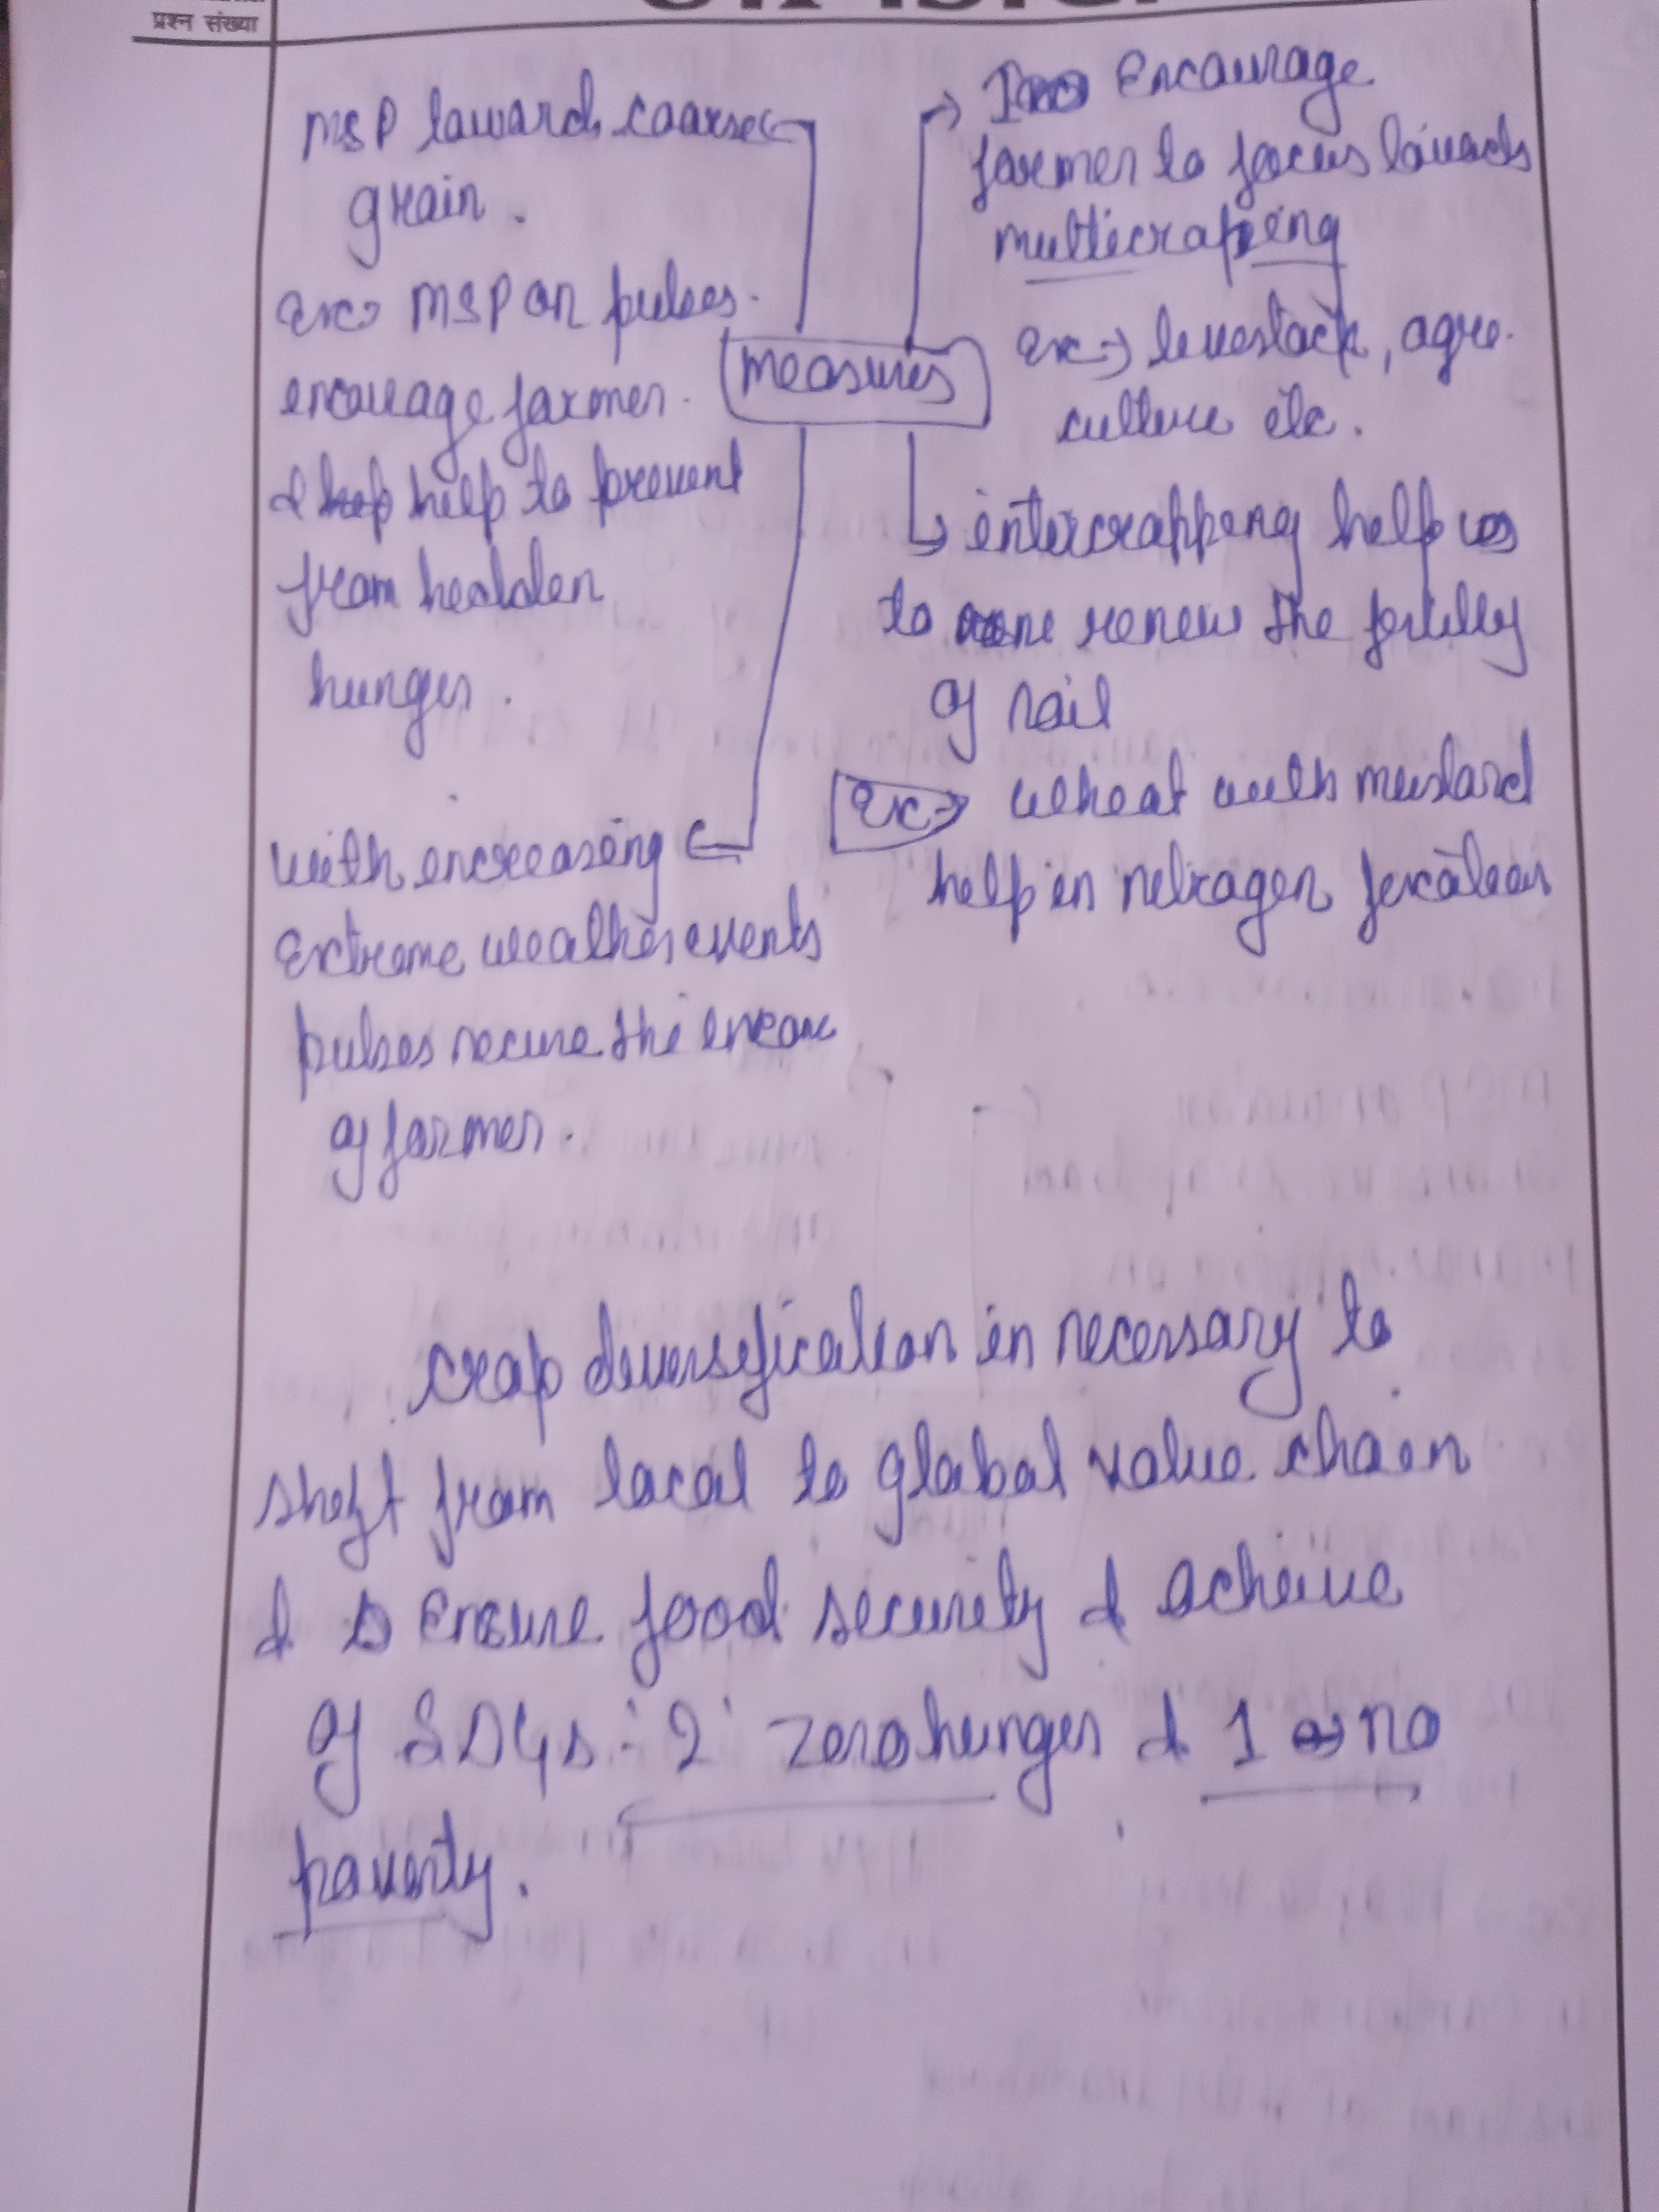 प्रश्न संख्या
MSP towards coarse
grain.
Ex→ MSP on pulses.
encourage farmer.
& help to prevent
from hidden
hunger.
Measures
→ Encourage
farmer to focus towards
multicroping
Ex→ livestock, agri-
culture etc.
↳ intercropping help us
to renew the fertility
of soil
Ex→ wheat with mustard
help in nitrogen fixation
with increasing
Extreme weather events
pulses secure the
of farmer.
crop diversification is necessary to
shift from local to global value chain
& Ensure food security & acheive
of SDGs - 2 zero hunger & 1 → no
poverty.